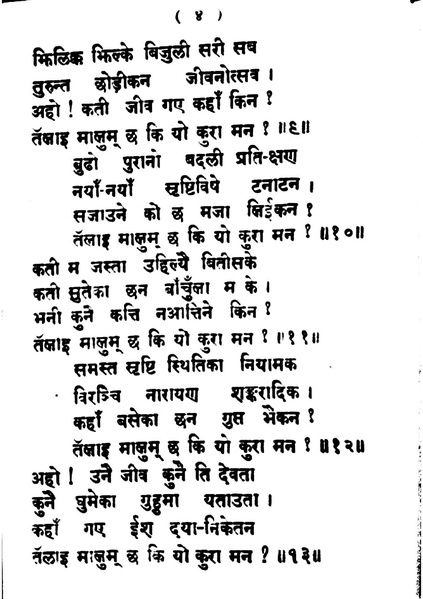 ( ४ )
झिलिक्क झिल्के बिजुली सरी सब
तुरुन्त छोड़ीकन जीवनोत्सव ।
अहो ! कती जीव गए कहाँ किन ?
तॅलाइ मालुम् छ कि यो कुरा मन ? ॥९॥
बुढो पुरानो बदली प्रति-क्षण
नयाँ-नयाँ सृष्टिविषे टनाटन ।
सजाउने को छ मजा लिईकन ?
तॅलाइ मालुम् छ कि यो कुरा मन ? ॥१०॥
कती म जस्ता उहिल्यै बितीसके
कती सुतेका छन बाँचुँला म के ।
भनी कुनै कत्ति नआत्तिने किन ?
तॅलाइ मालुम् छ कि यो कुरा मन ? ॥११॥
समस्त सृष्टि स्थितिका नियामक
विरञ्चि नारायण शङ्करादिक ।
कहाँ बसेका छन गुप्त भैकन ?
तॅलाइ मालुम् छ कि यो कुरा मन ? ॥१२॥
अहो ! उनै जीव कुनै ति देवता
कुनै घुमेका गुह्रुमा यताउता ।
कहाँ गए ईश दया-निकेतन
तॅलाइ मालुम् छ कि यो कुरा मन ? ॥१३॥